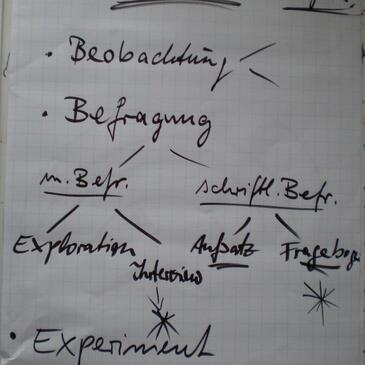 • Beobachtung
• Befragung
m. Befr. schriftl. Befr.
Exploration Interview Aufsatz Fragebogen
• Experiment